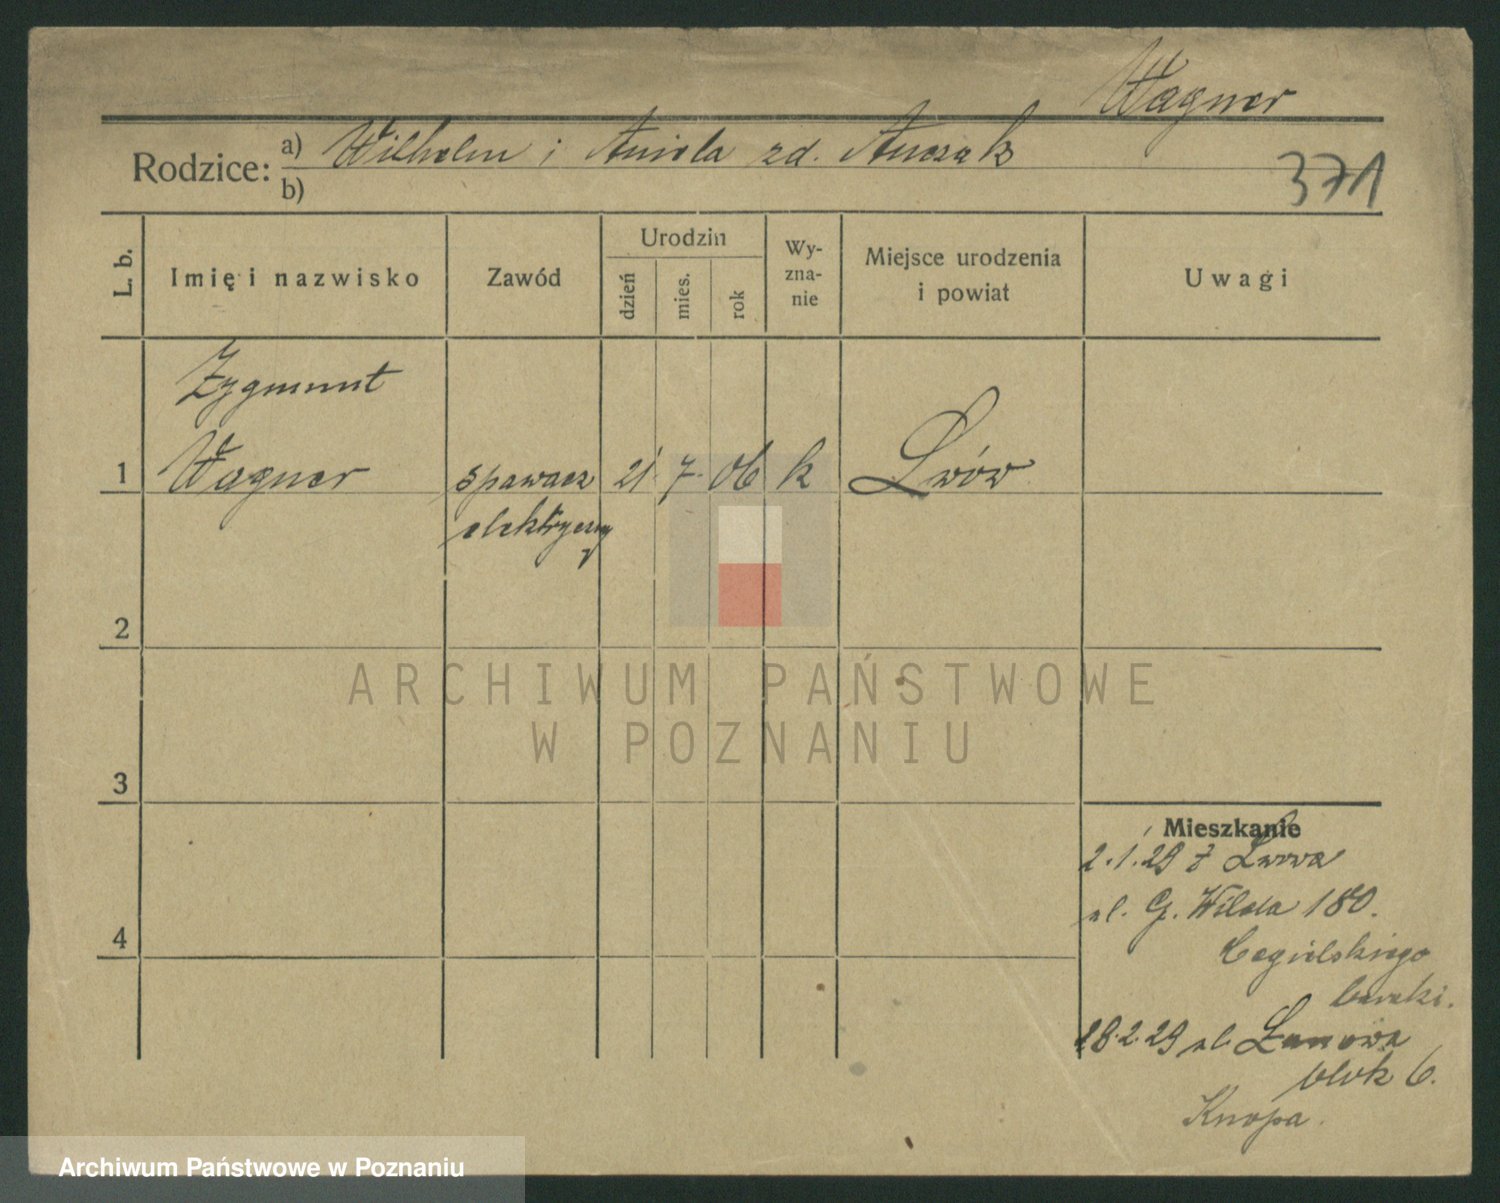 Wagner
Rodzice: a) Wilhelm i Aniela zd. Anczak
b)
371
L. b.
Imię i nazwisko
Zawód
Urodzin
dzień
mies.
rok
Wy-
zna-
nie
Miejsce urodzenia
i powiat
Uwagi
Zygmunt
1 Wagner spawacz 21. 7. 06 k Lwów
elektryczny
2
3
4
Mieszkanie
2.1.29 z Lwowa
ul. G. Wilda 180.
Cegielskiego
baraki.
28.2.29 ul. Łanowa
blok 6.
Knopa.
ARCHIWUM PAŃSTWOWE
W POZNANIU
Archiwum Państwowe w Poznaniu